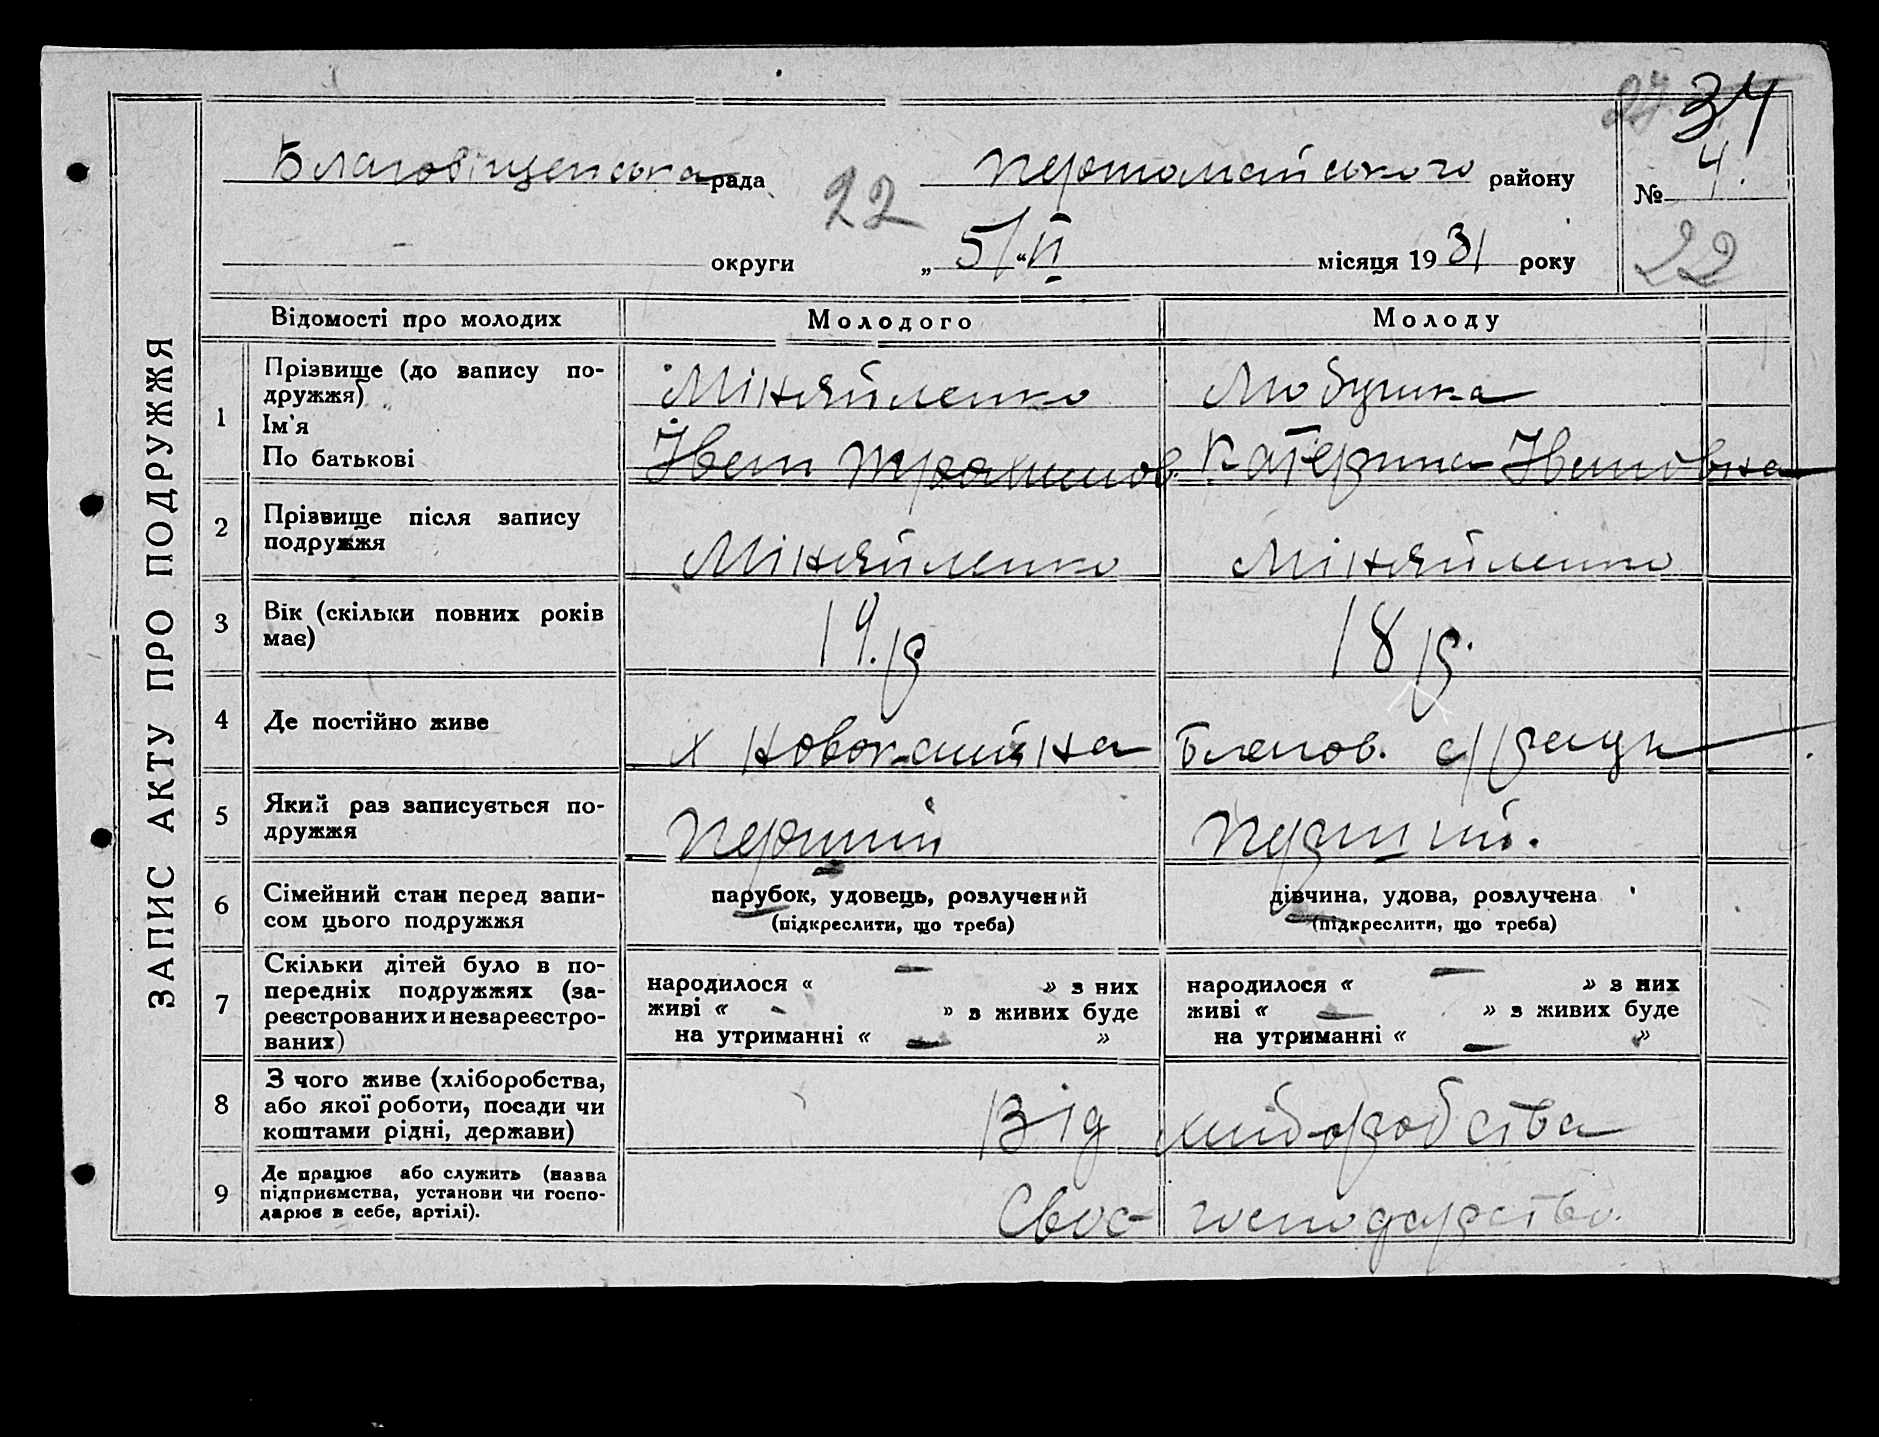 ЗАПИС АКТУ ПРО ПОДРУЖЖЯ
27 34
Благовіщенська рада 22 Першомайського району № 4.
округи „ 5/ “ II місяця 1931 року 22
Відомості про молодих Молодого Молоду
1 Прізвище (до запису по-
дружжя) Міняйленко
Ім'я
По батькові Іван Катерина Івановна
2 Прізвище після запису
подружжя Міняйленко Міняйленко
3 Вік (скільки повних років
має) 19.р 18 р.
4 Де постійно живе х Благов. с/ради
5 Який раз записується по-
дружжя перший перший.
6 Сімейний стан перед запи-
сом цього подружжя
парубок, удовець, розлучений дівчина, удова, розлучена
(підкреслити, що треба) (підкреслити, що треба)
7 Скільки дітей було в по-
передніх подружжях (за-
реєстрованих и незареєстро-
ваних)
народилося « — » з них народилося « — » з них
живі « - » з живих буде живі « — » з живих буде
на утриманні « — » на утриманні « — »
8 З чого живе (хліборобства,
або якої роботи, посади чи
коштами рідні, держави) Від хліборобства
9 Де працює або служить (назва
підприємства, установи чи госпо-
дарює в себе, артілі). Своє господарство.